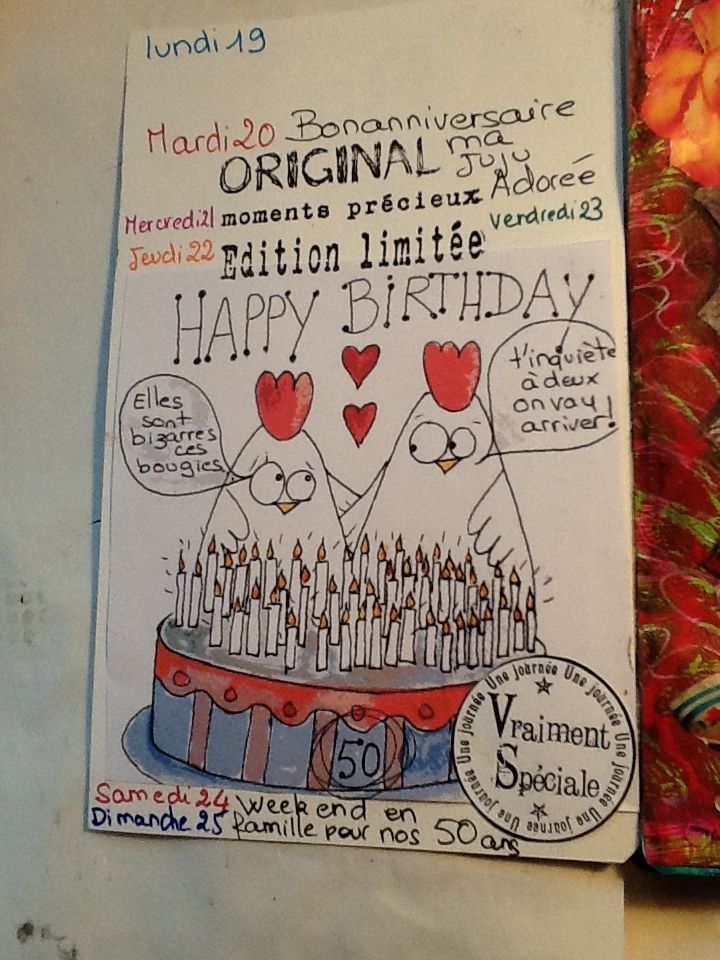 lundi 19
Mardi 20 Bonanniversaire
ma
JuJu
Adorée
ORIGINAL
Mercredi 21 moments précieux
Vendredi 23
Jeudi 22 Edition limitée
HAPPY BIRTHDAY
Elles
sont
bizarres
ces
bougies
t'inquiète
à deux
on va y
arriver!
50
Une journée Une journée Une journée Une journée Une journée Une journée
Vraiment
Spéciale
Samedi 24 Week end en
Dimanche 25 famille pour nos 50 ans